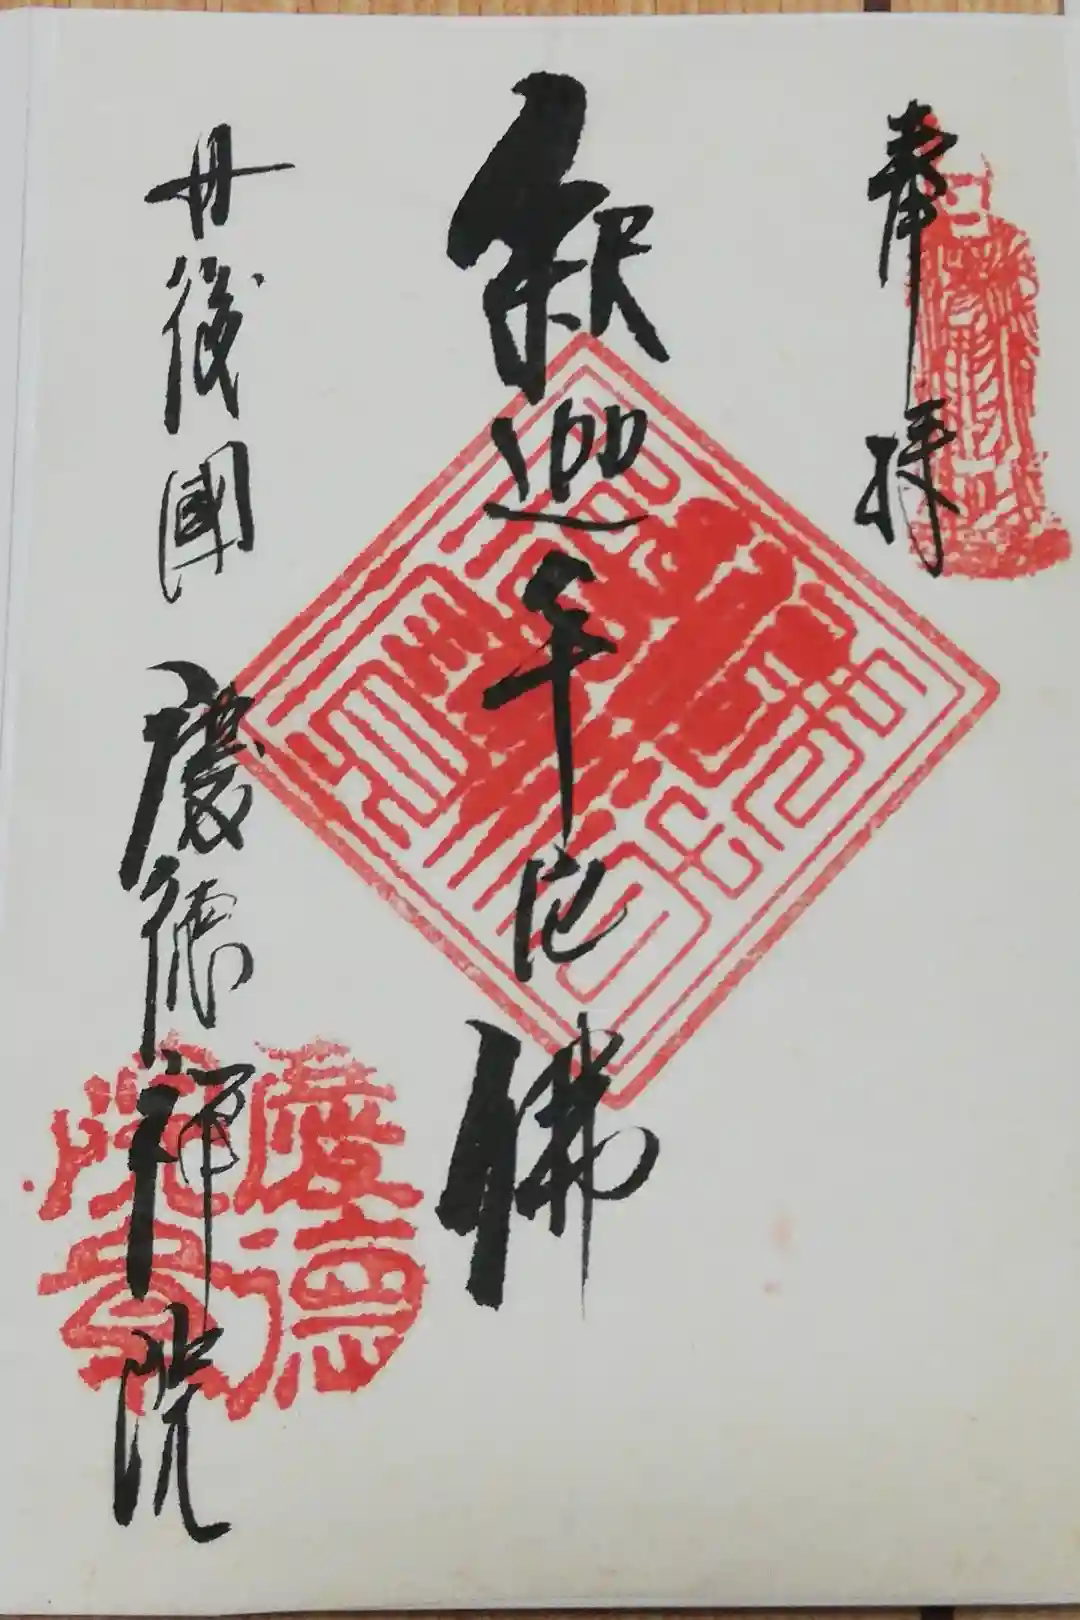 奉拝
釈迦牟尼佛
丹後國 慶徳禅院
慶徳